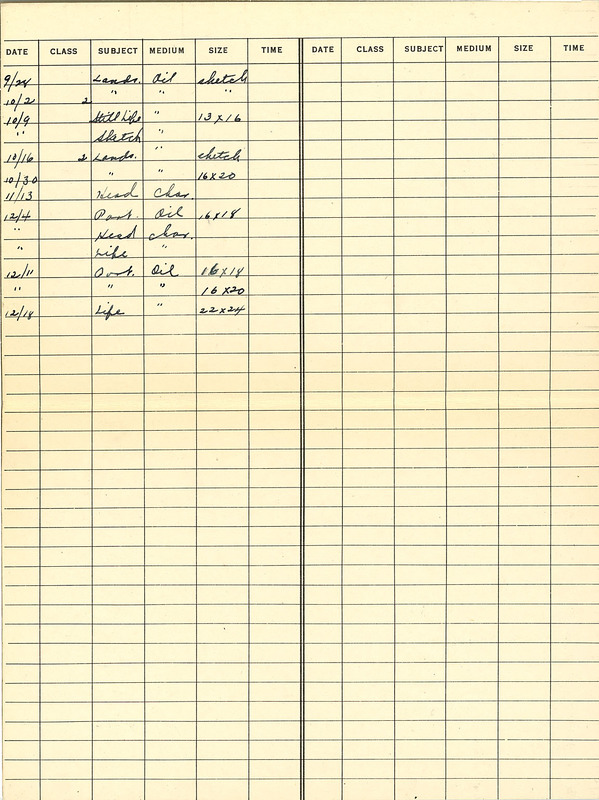 DATE CLASS SUBJECT MEDIUM SIZE TIME DATE CLASS SUBJECT MEDIUM SIZE TIME
9/28 Lands. Oil sketch
10/2 2 " " "
10/9 Still Life " 13 x 16
" Sketch "
10/16 2 Lands. " sketch
10/30 " " 16 x 20
11/13 Head Char.
12/4 Port. Oil 16 x 18
" Head char.
" Life "
12/11 Port. Oil 16 x 18
" " " 16 x 20
12/18 Life " 22 x 24